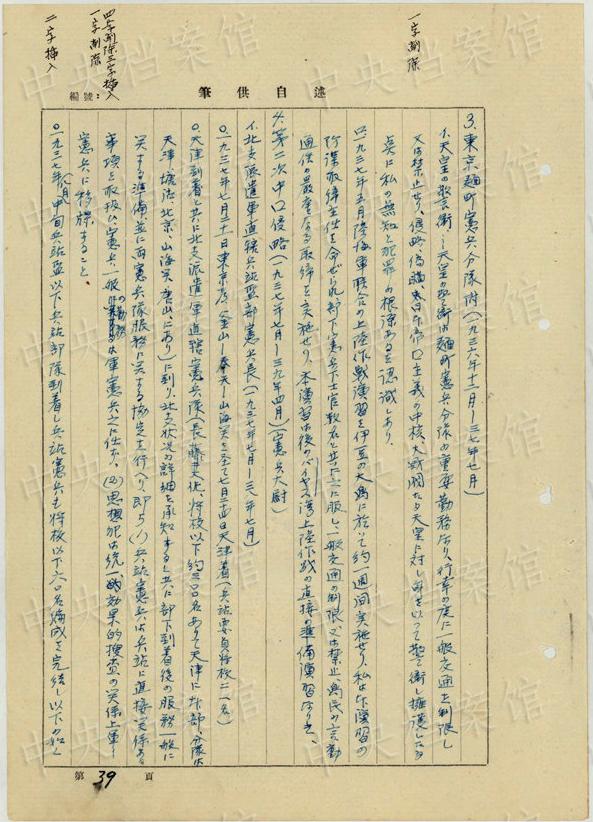 一字削除
四字削除三字挿入
一字削除
二字挿入
編號：
筆供自述
3、東京麹町憲兵分隊附(一九三六年十二月―三七年七月)
イ、天皇の警衛―天皇の警衛は麹町憲兵分隊の重要勤務なり、行幸の度に一般交通を制限し
又は禁止せり、侵略 日本帝口主義の中核、大戦闘たる天皇に対し身を以って警衛し擁護したる
点に私の無知と犯罪の根源あるを認識しあり、
ロ、一九三七年五月陸海軍聯合の上陸作戦演習を伊豆の大島に於いて約一週間実施せり、私は本演習の
防諜取締主任を命ぜられ部下憲兵下士官数名と共に之に服し、一般交通の制限、又は禁止、島民の言動
通信の厳重なる取締を実施せり、本演習は後のバイヤス湾上陸作戦の直接の準備演習なりき、
4、第二次中口侵略(一九三七年七月―三九年四月)(憲兵大尉)
イ、北支派遣軍直轄兵站監部憲兵長(一九三七年七月―三八年七月)
〇、一九三七年七月二十日東京発(釜山―奉天―山海関を至て七月二四日天津着(兵站要員将校二一名)
〇、天津到着と共に北支派遣軍直轄憲兵隊(長 将校以下約三〇名ありて天津に本部、分隊は
天津、塘沽、北京、山海関、唐山、にあり)に到り、北支状況の詳細を承知すると共に部下到着後の服務一般に
関する準備並に両憲兵隊服務に関する協定を行へり即ち(1)兵站憲兵は兵站に直接関係ある
事項を取扱ひ、憲兵一般の勤務は軍憲兵之に任ず、(2)思想犯は統一的効果的捜査の関係上軍
憲兵に移牒すること
〇、一九三七年八月中旬兵站監以下兵站部隊到着し兵站憲兵も将校以下六〇名編成を完結し以下の如く
第39頁
中央档案馆